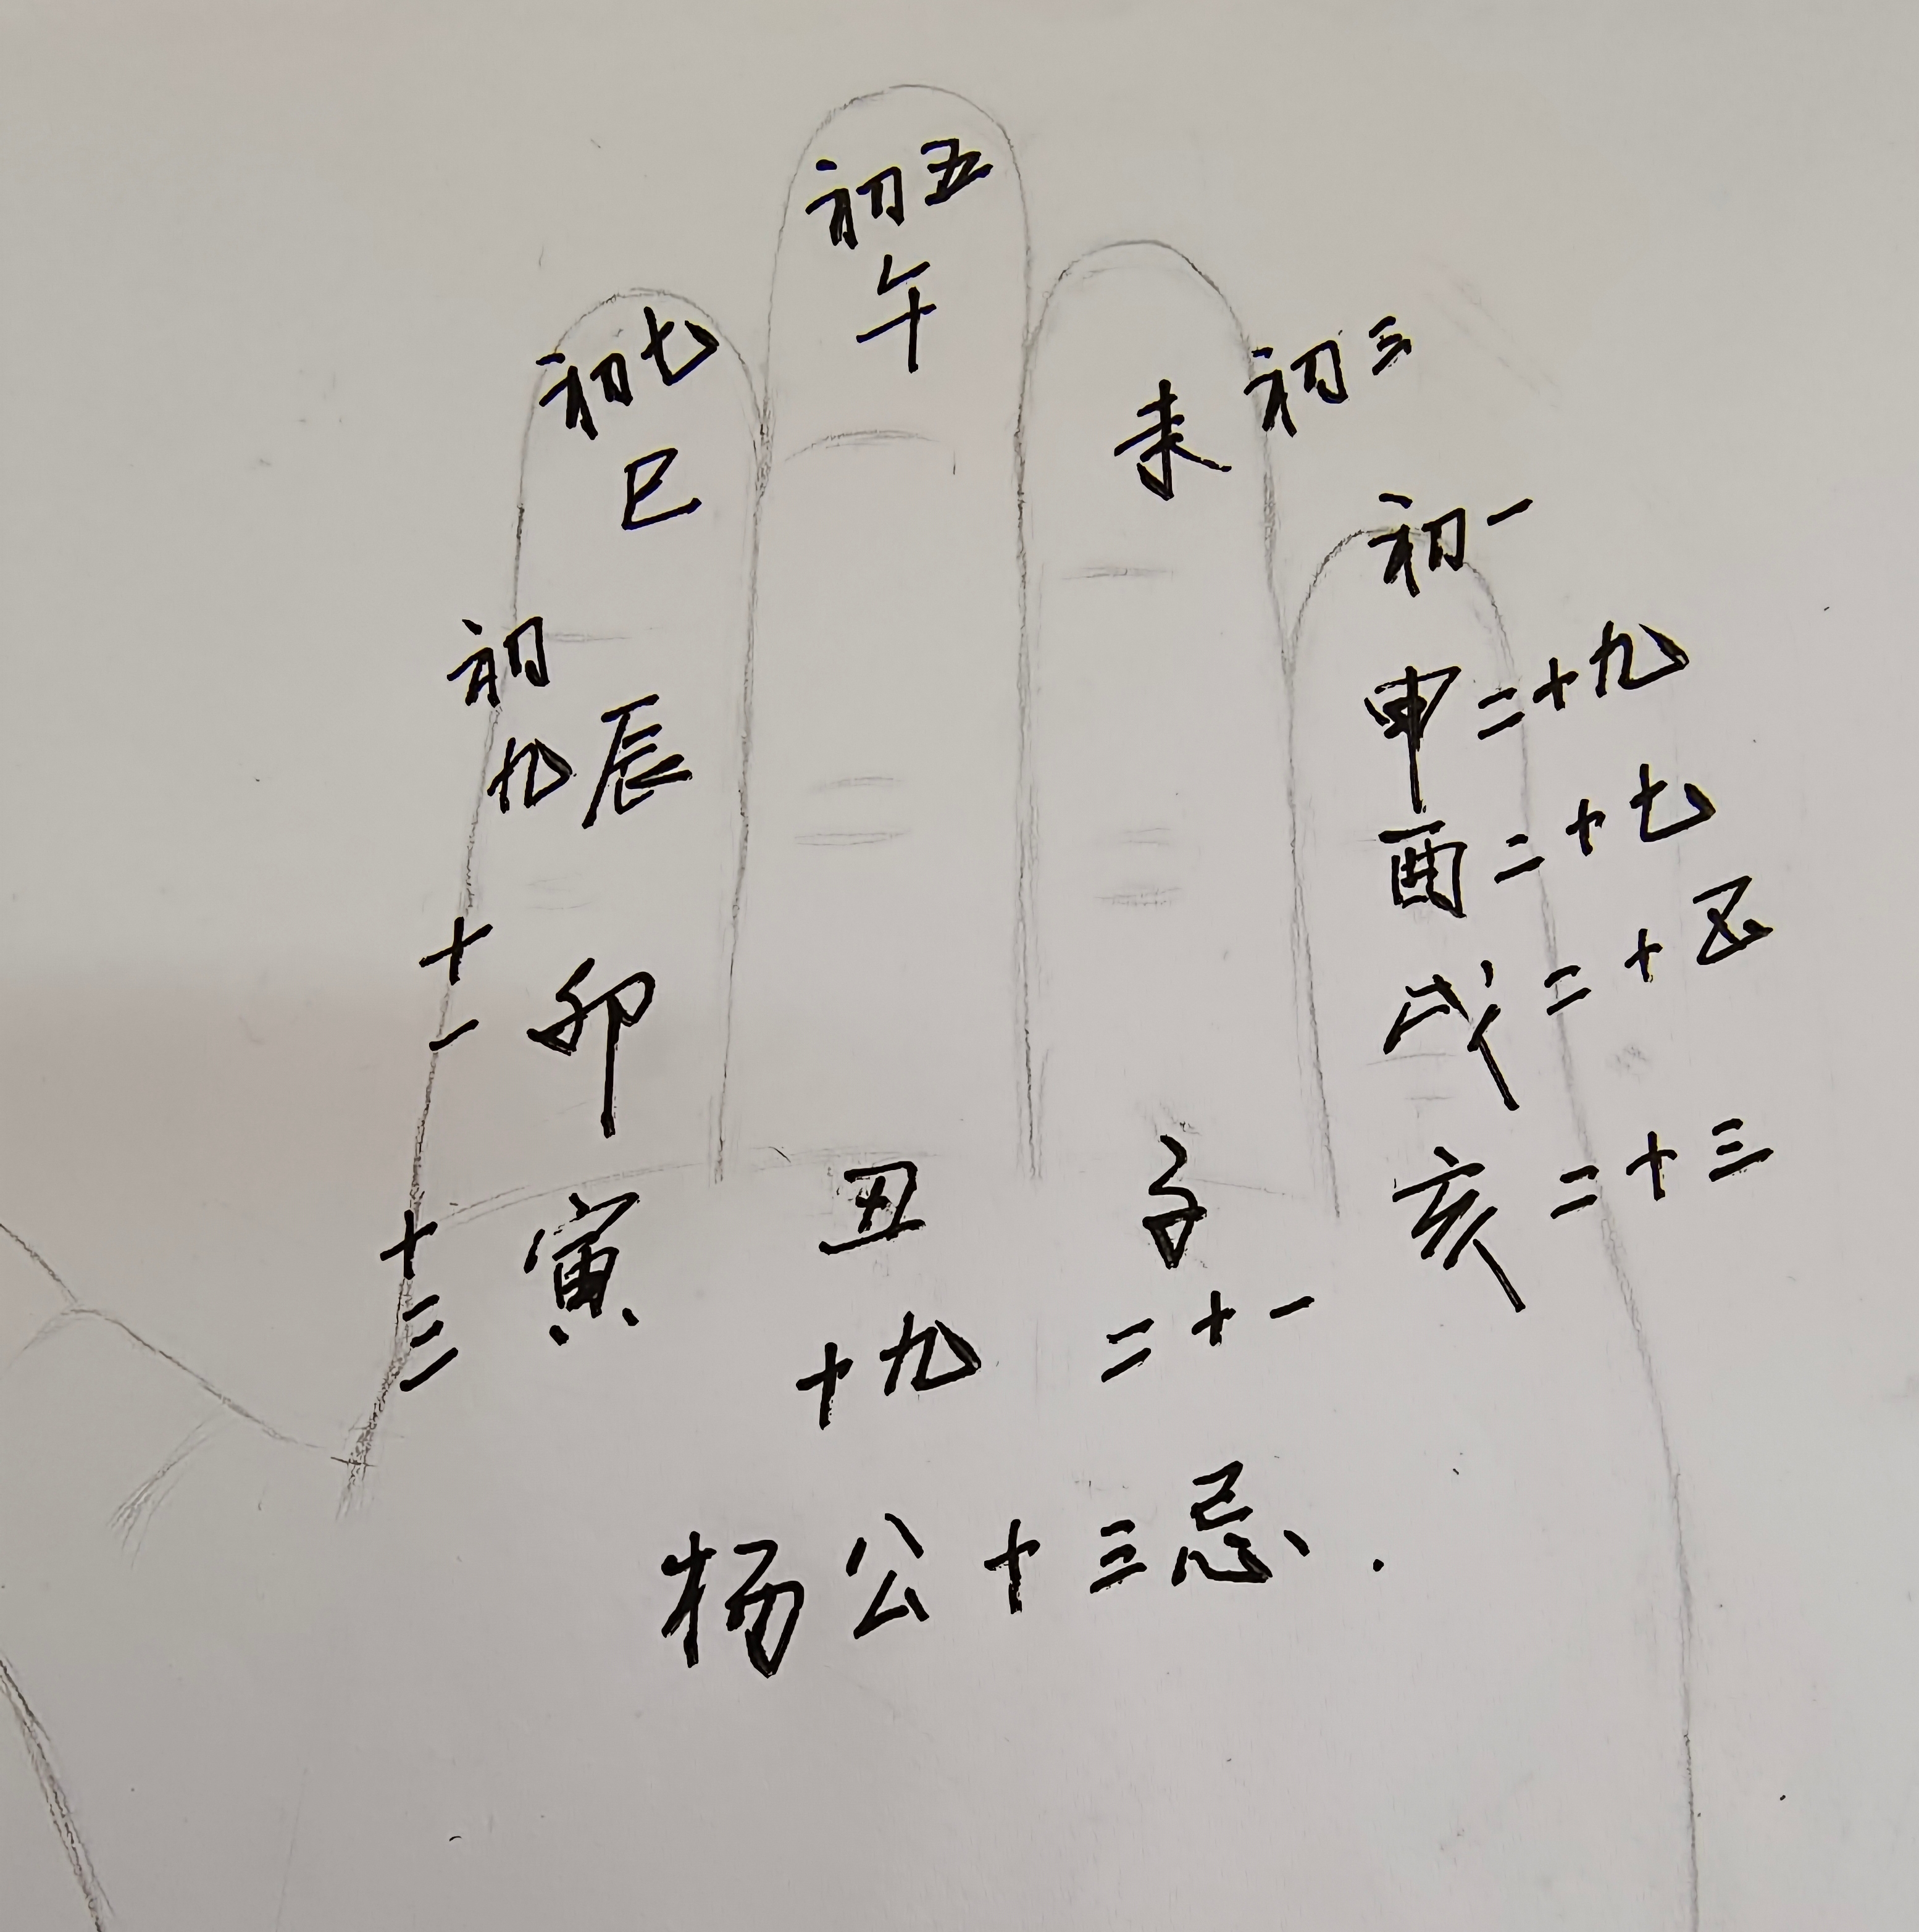 初五
午
初七
巳
未 初三
初一
初九 辰
申 二十九
酉 二十七
十一 卯
戌 二十五
十三 寅
丑
十九
子
二十一
亥 二十三
杨公十三忌.